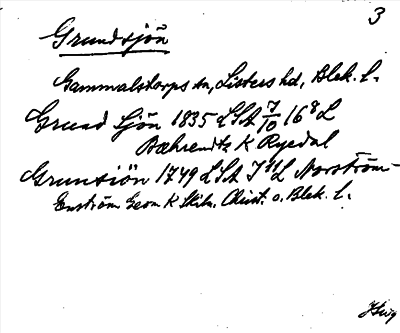 3
Grundsjön
Gammalstorps sn, Listers hd, Blek. l.
Grund Sjön 1835 LSA 7/10 16⁸ L
Bæhrendtz K Ryedal
Grunsiön 1749 LSA J¹¹L Norström-
Enström Geom K Skiln. Christ. o. Blek. l.